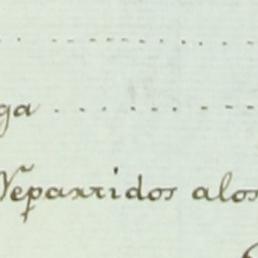 ga
Repartidos alos